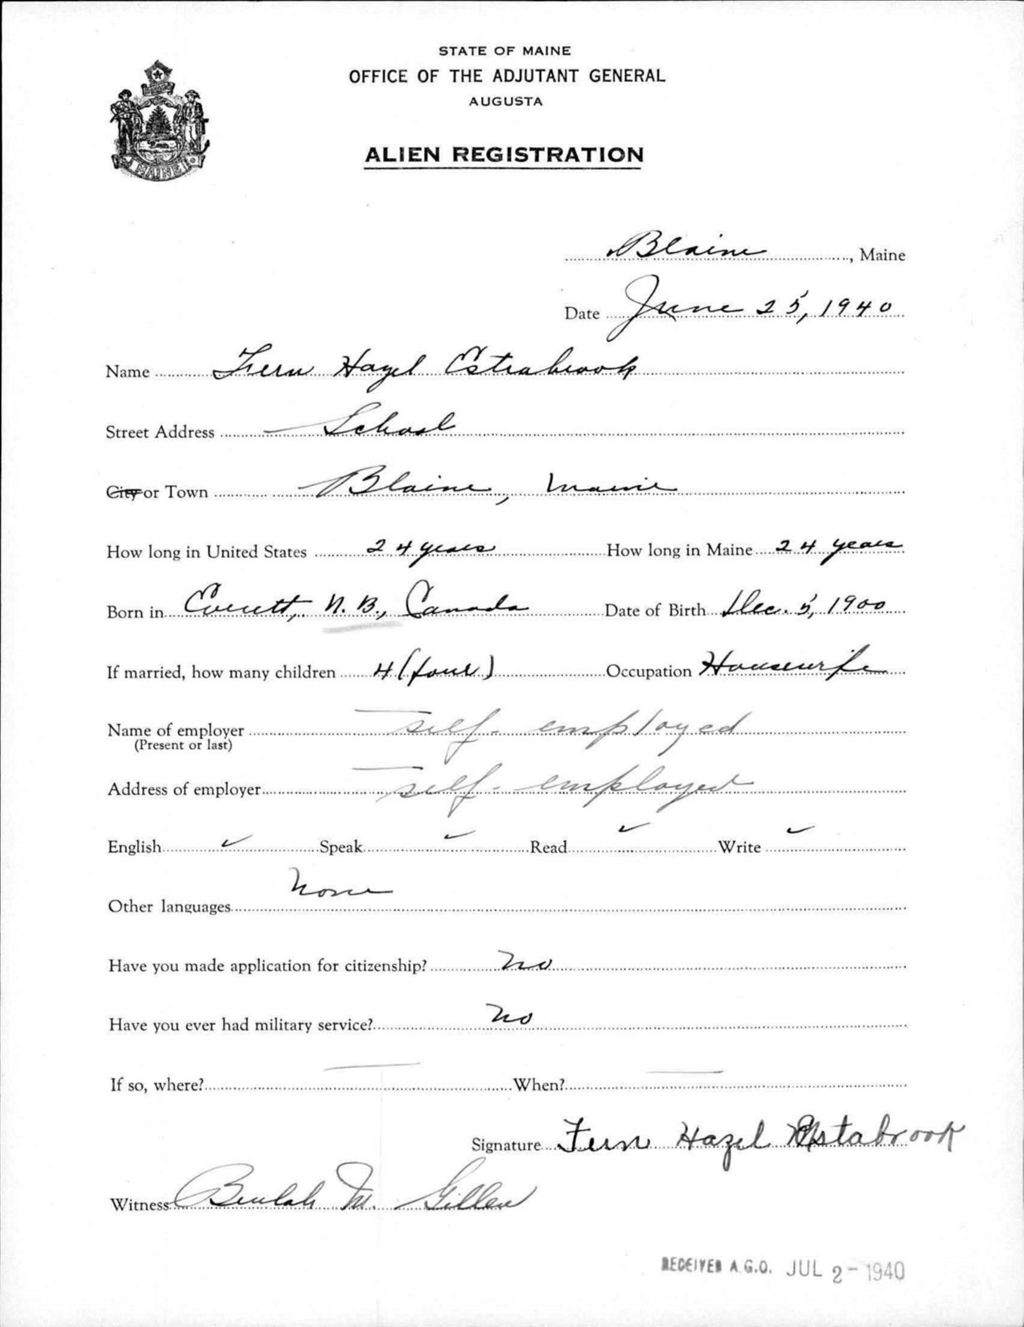 STATE OF MAINE
OFFICE OF THE ADJUTANT GENERAL
AUGUSTA
ALIEN REGISTRATION
MAINE
Blaine, Maine
Date June 25, 1940
Name Fern Hazel Estrabrook
Street Address School
City or Town Blaine, Maine
How long in United States 24 years How long in Maine 24 years
Born in Everett, N.B., Canada Date of Birth Dec. 5, 1900
If married, how many children 4 (four) Occupation Housewife
Name of employer self-employed
(Present or last)
Address of employer self-employed
English ✓ Speak ✓ Read ✓ Write ✓
Other languages None
Have you made application for citizenship? No
Have you ever had military service? No
If so, where? — When? —
Signature Fern Hazel Estabrook
Witness Beulah M. Gillen
RECEIVED A.G.O. JUL 2 - 1940